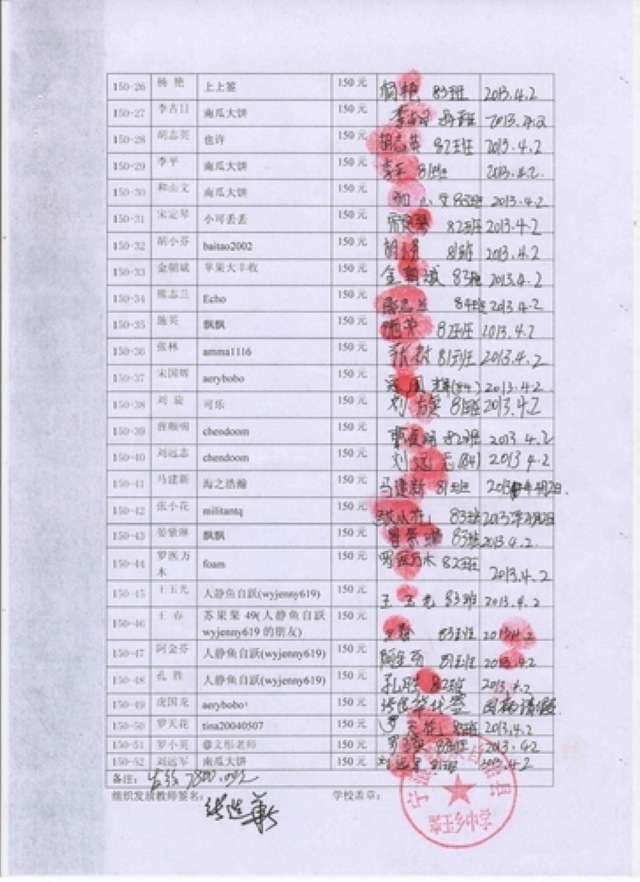 150-26 杨艳 上上签 150元 杨艳 83班 2013.4.2
150-27 李古日 南瓜大饼 150元 2013.4.2
150-28 胡志英 也许 150元 胡志英 82班 2013.4.2
150-29 李平 南瓜大饼 150元 李平 81班 2013.4.2
150-30 和山文 南瓜大饼 150元 和山文 83班 2013.4.2
150-31 宋定琴 小可丢丢 150元 82班 2013.4.2
150-32 胡小芬 baitao2002 150元 81班 2013.4.2
150-33 金朝斌 苹果大丰收 150元 金朝斌 83班 2013.4.2
150-34 熊志兰 Echo 150元 84班 2013.4.2
150-35 施英 飘飘 150元 82班 2013.4.2
150-36 张林 amma1116 150元 张林 81班 2013.4.2
150-37 宋国辉 aerybobo 150元 宋国辉(84) 2013.4.2
150-38 刘旋 可乐 150元 刘旋 81班 2013.4.2
150-39 曹顺明 chendoom 150元 82班 2013.4.2
150-40 刘远志 chendoom 150元 刘远志(84) 2013.4.2
150-41 马建新 海之浩瀚 150元 马建新 81班
150-42 张小花 militantq 150元 83班
150-43 晏紫琳 飘飘 150元 83班 2013.4.2
150-44 罗医万木 foam 150元 罗医万木 82班 2013.4.2
150-45 王玉光 人静鱼自跃(wyjenny619) 150元 王玉光 83班 2013.4.2
150-46 王春 苏果果49(人静鱼自跃
wyjenny619的朋友) 150元 王春 83班 2013.4.2
150-47 阿金芬 人静鱼自跃(wyjenny619) 150元 阿金芬 81班 2013.4.2
150-48 孔胜 人静鱼自跃(wyjenny619) 150元 孔胜 82班 2013.4.2
150-49 虎国龙 aerybobo 150元
150-50 罗天花 tina20040507 150元 罗天花 2013.4.2
150-51 罗小英 @文彤老师 150元 2013.4.2
150-52 刘远军 南瓜大饼 150元 刘远军 81班 2013.4.2
备注:
组织发放教师签名: 学校盖章: